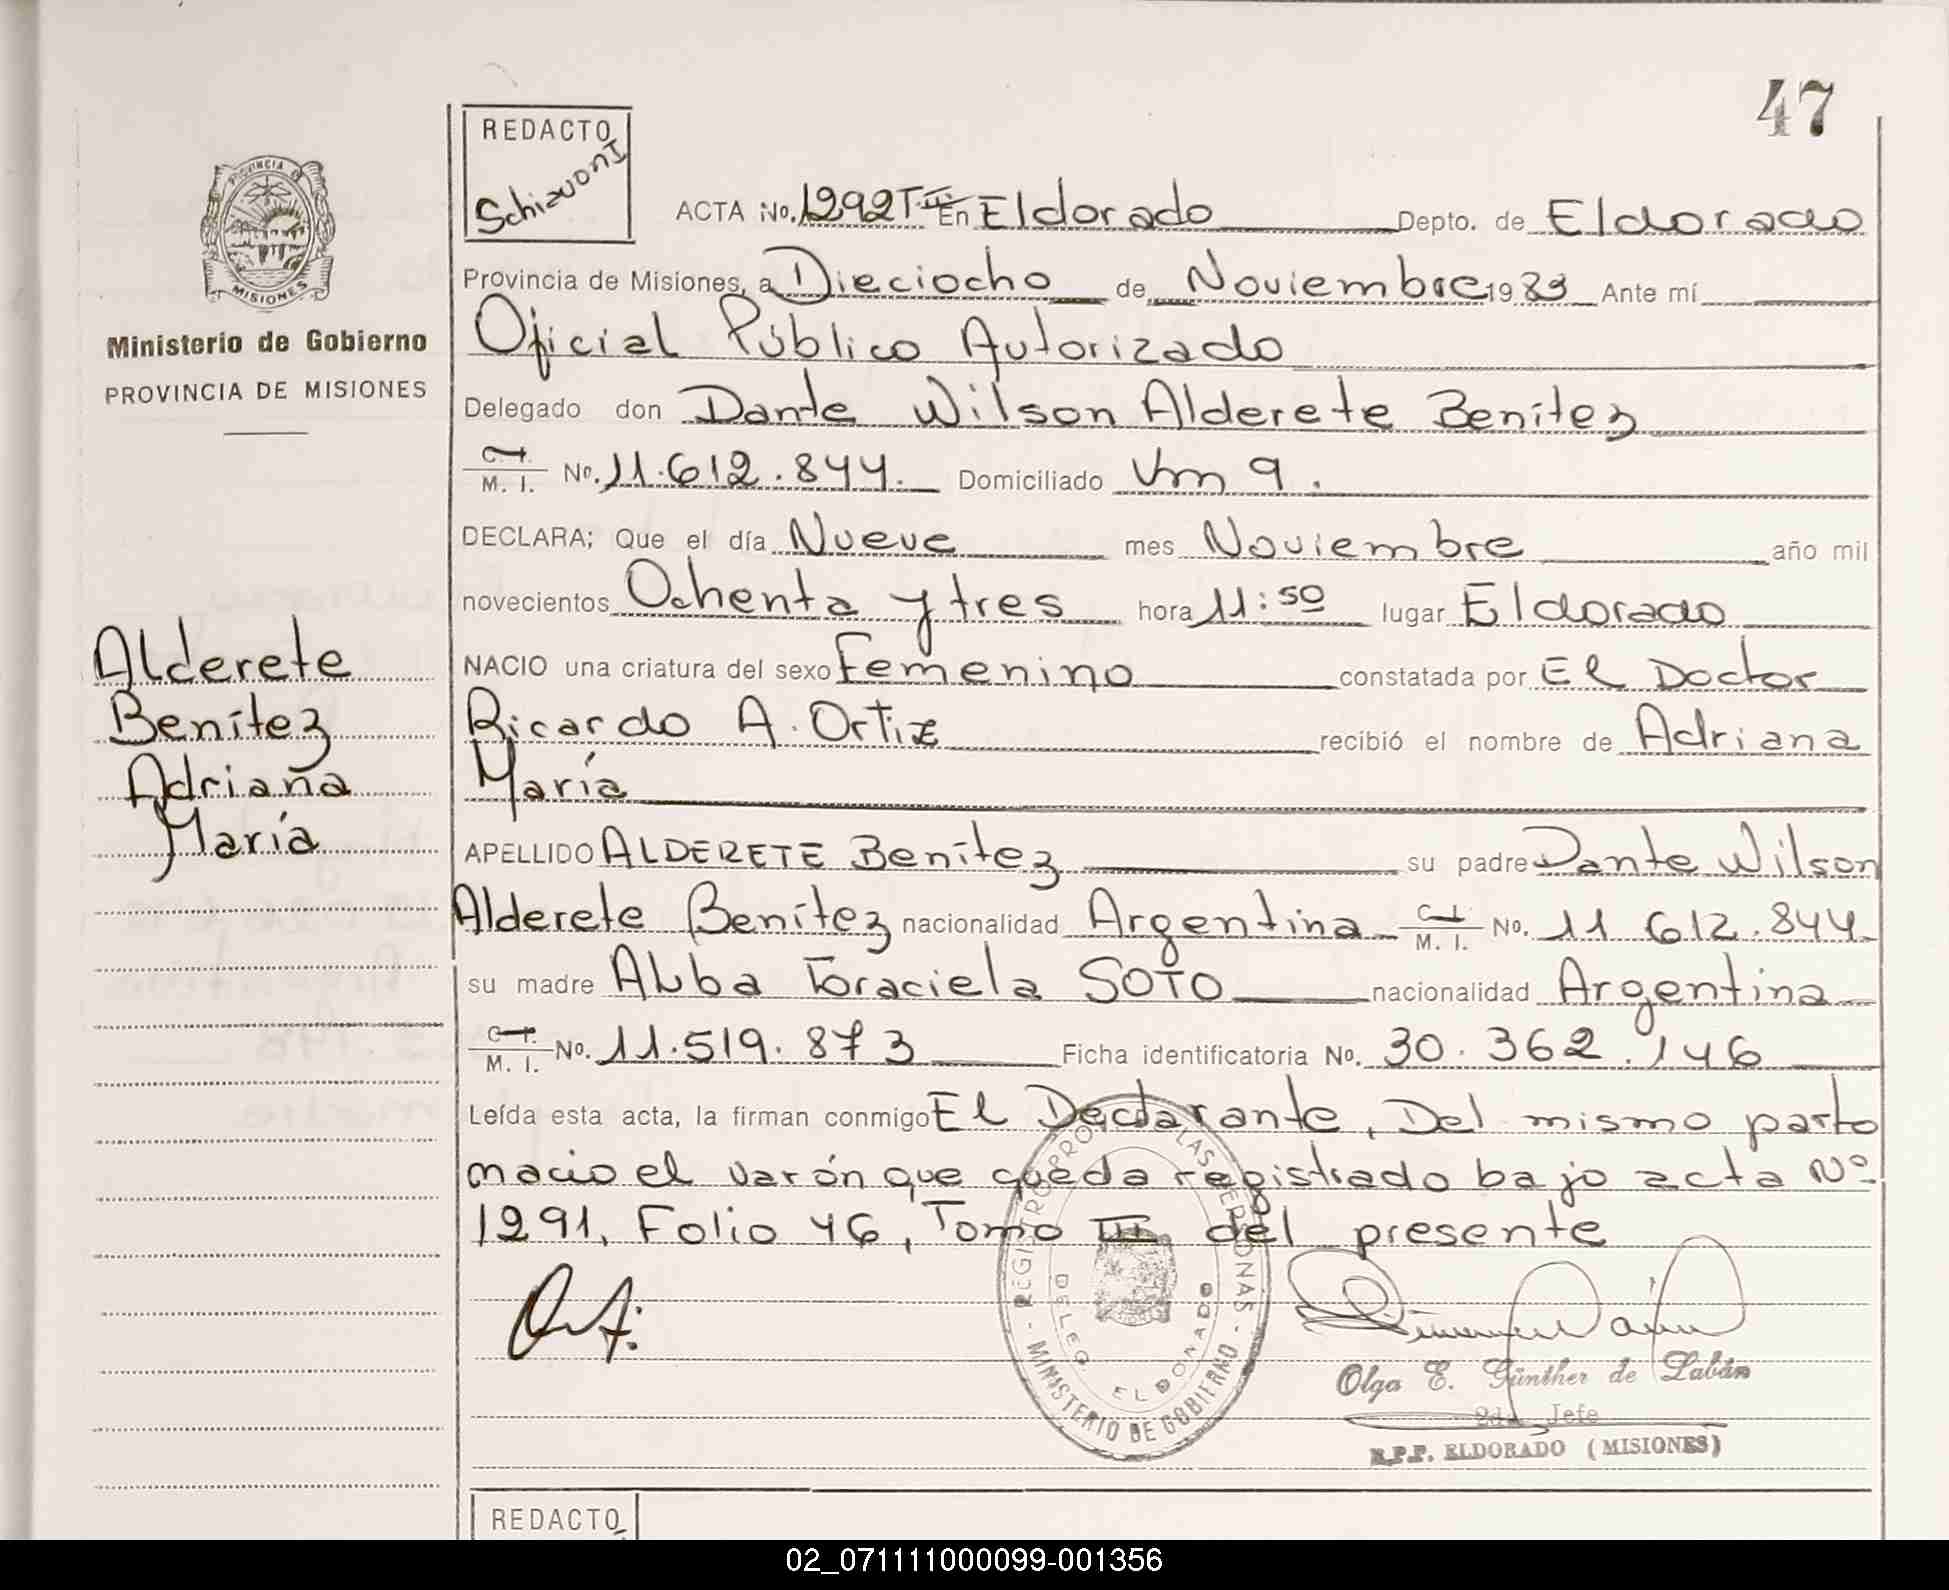 47
REDACTO
Schiavoni
PROVINCIA DE
MISIONES
Ministerio de Gobierno
PROVINCIA DE MISIONES
ACTA No. 1292 T. III En Eldorado Depto. de Eldorado
Provincia de Misiones, a Dieciocho de Noviembre 1983 Ante mí
Oficial Público Autorizado
Delegado don Dante Wilson Alderete Benítez
C. I.
M. I. No. 11.612.844. Domiciliado Km 9.
DECLARA; Que el día Nueve mes Noviembre año mil
novecientos Ochenta y tres hora 11:50 lugar Eldorado
NACIO una criatura del sexo Femenino constatada por El Doctor
Ricardo A. Ortiz recibió el nombre de Adriana
María
Alderete
Benítez
Adriana
María
APELLIDO ALDERETE Benítez su padre Dante Wilson
Alderete Benítez nacionalidad Argentina C. I. M. I. No. 11 612.844
su madre Alba Graciela SOTO nacionalidad Argentina
C. I.
M. I. No. 11.519.873 Ficha identificatoria No. 30.362.146
Leída esta acta, la firman conmigo El Declarante, Del mismo parto
nacio el varón que queda registrado bajo acta Nº
1291, Folio 46, Tomo III del presente
REGISTRO PROV. DE LAS PERSONAS - MINISTERIO DE GOBIERNO -
DELEG ELDORADO
Olga E. Günther de Labán
2da Jefe
R.P.P. ELDORADO (MISIONES)
REDACTO
02_071111000099-001356